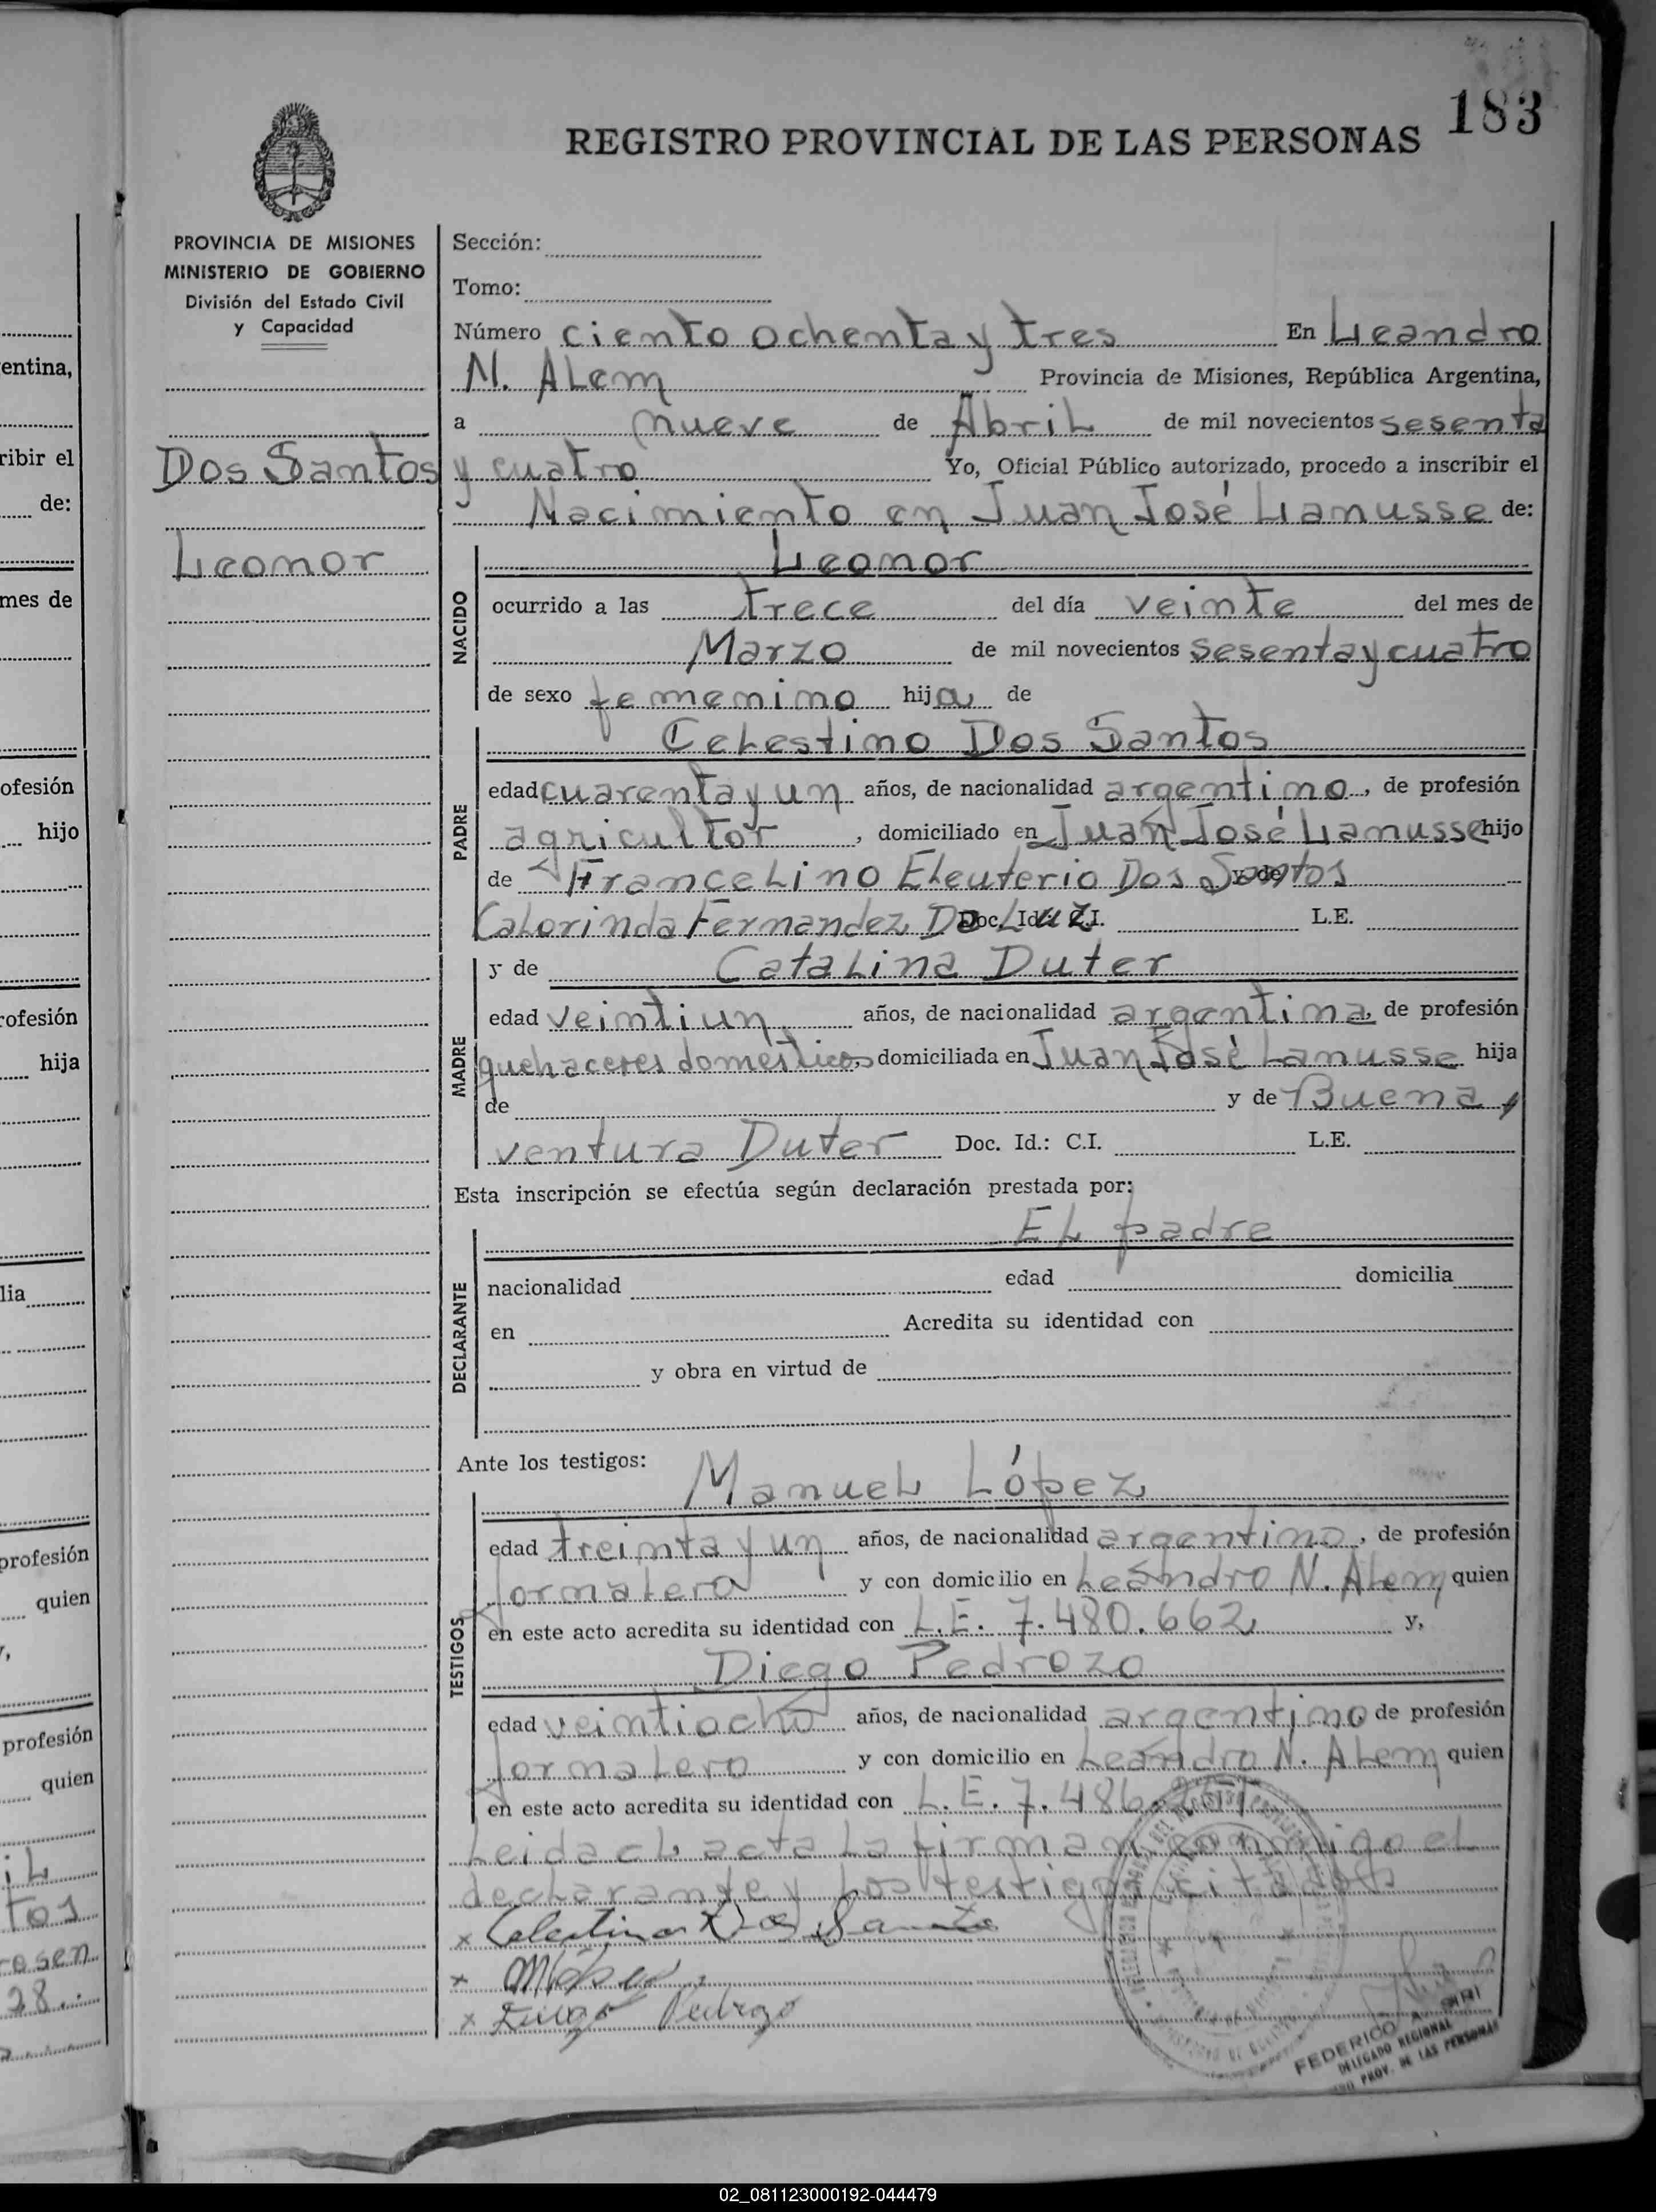 183
REGISTRO PROVINCIAL DE LAS PERSONAS
PROVINCIA DE MISIONES
MINISTERIO DE GOBIERNO
División del Estado Civil
y Capacidad
Dos Santos
Leonor
Sección:
Tomo:
Número ciento ochenta y tres En Leandro
N. Alem Provincia de Misiones, República Argentina,
a nueve de Abril de mil novecientos sesenta
y cuatro Yo, Oficial Público autorizado, procedo a inscribir el
Nacimiento en Juan José Lanusse de:
NACIDO
Leonor
ocurrido a las trece del día veinte del mes de
Marzo de mil novecientos sesenta y cuatro
de sexo femenino hija de
PADRE
Celestino Dos Santos
edad cuarenta y un años, de nacionalidad argentino, de profesión
agricultor, domiciliado en Juan José Lanusse hijo
de Francelino Eleuterio Dos Santos y de
Calorinda Fernandez Da Luz Doc. Id.: C.I. L.E.
MADRE
y de Catalina Duter
edad veintiun años, de nacionalidad argentina, de profesión
quehaceres domesticos, domiciliada en Juan José Lanusse hija
de y de Buena
ventura Duter Doc. Id.: C.I. L.E.
Esta inscripción se efectúa según declaración prestada por:
DECLARANTE
El padre
nacionalidad edad domicilia
en Acredita su identidad con
y obra en virtud de
Ante los testigos:
TESTIGOS
Manuel López
edad treinta y un años, de nacionalidad argentino, de profesión
jornalero y con domicilio en Leandro N. Alem quien
en este acto acredita su identidad con L.E. 7.480.662 y,
Diego Pedrozo
edad veintiocho años, de nacionalidad argentino de profesión
jornalero y con domicilio en Leandro N. Alem quien
en este acto acredita su identidad con L.E. 7.486.
Leida el acta la firman conmigo el
declarante y los testigos citados
x Celestino Dos Santos
x MLópez
x Diego Pedrozo
FEDERICO A.
DELEGADO REGIONAL
PROV. DE LAS PERSONAS
entina,
ribir el
de:
mes de
ofesión
hijo
rofesión
hija
lia
profesión
quien
profesión
quien
02_081123000192-044479